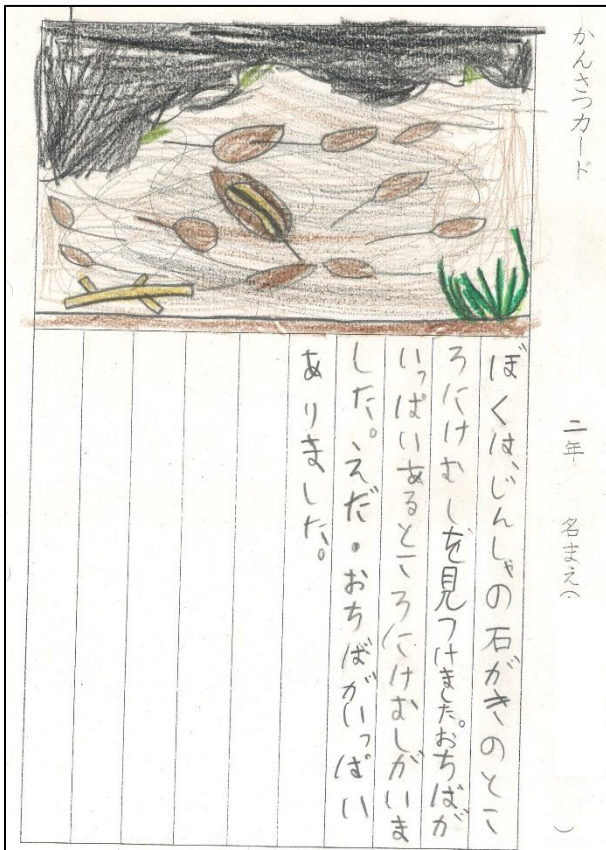 かんさつカード
二年 名まえ( )
ぼくは、じんじゃの石がきのとこ
ろにけむしを見つけました。おちばが
いっぱいあるところにけむしがいま
した。えだ・おちばがいっぱい
ありました。